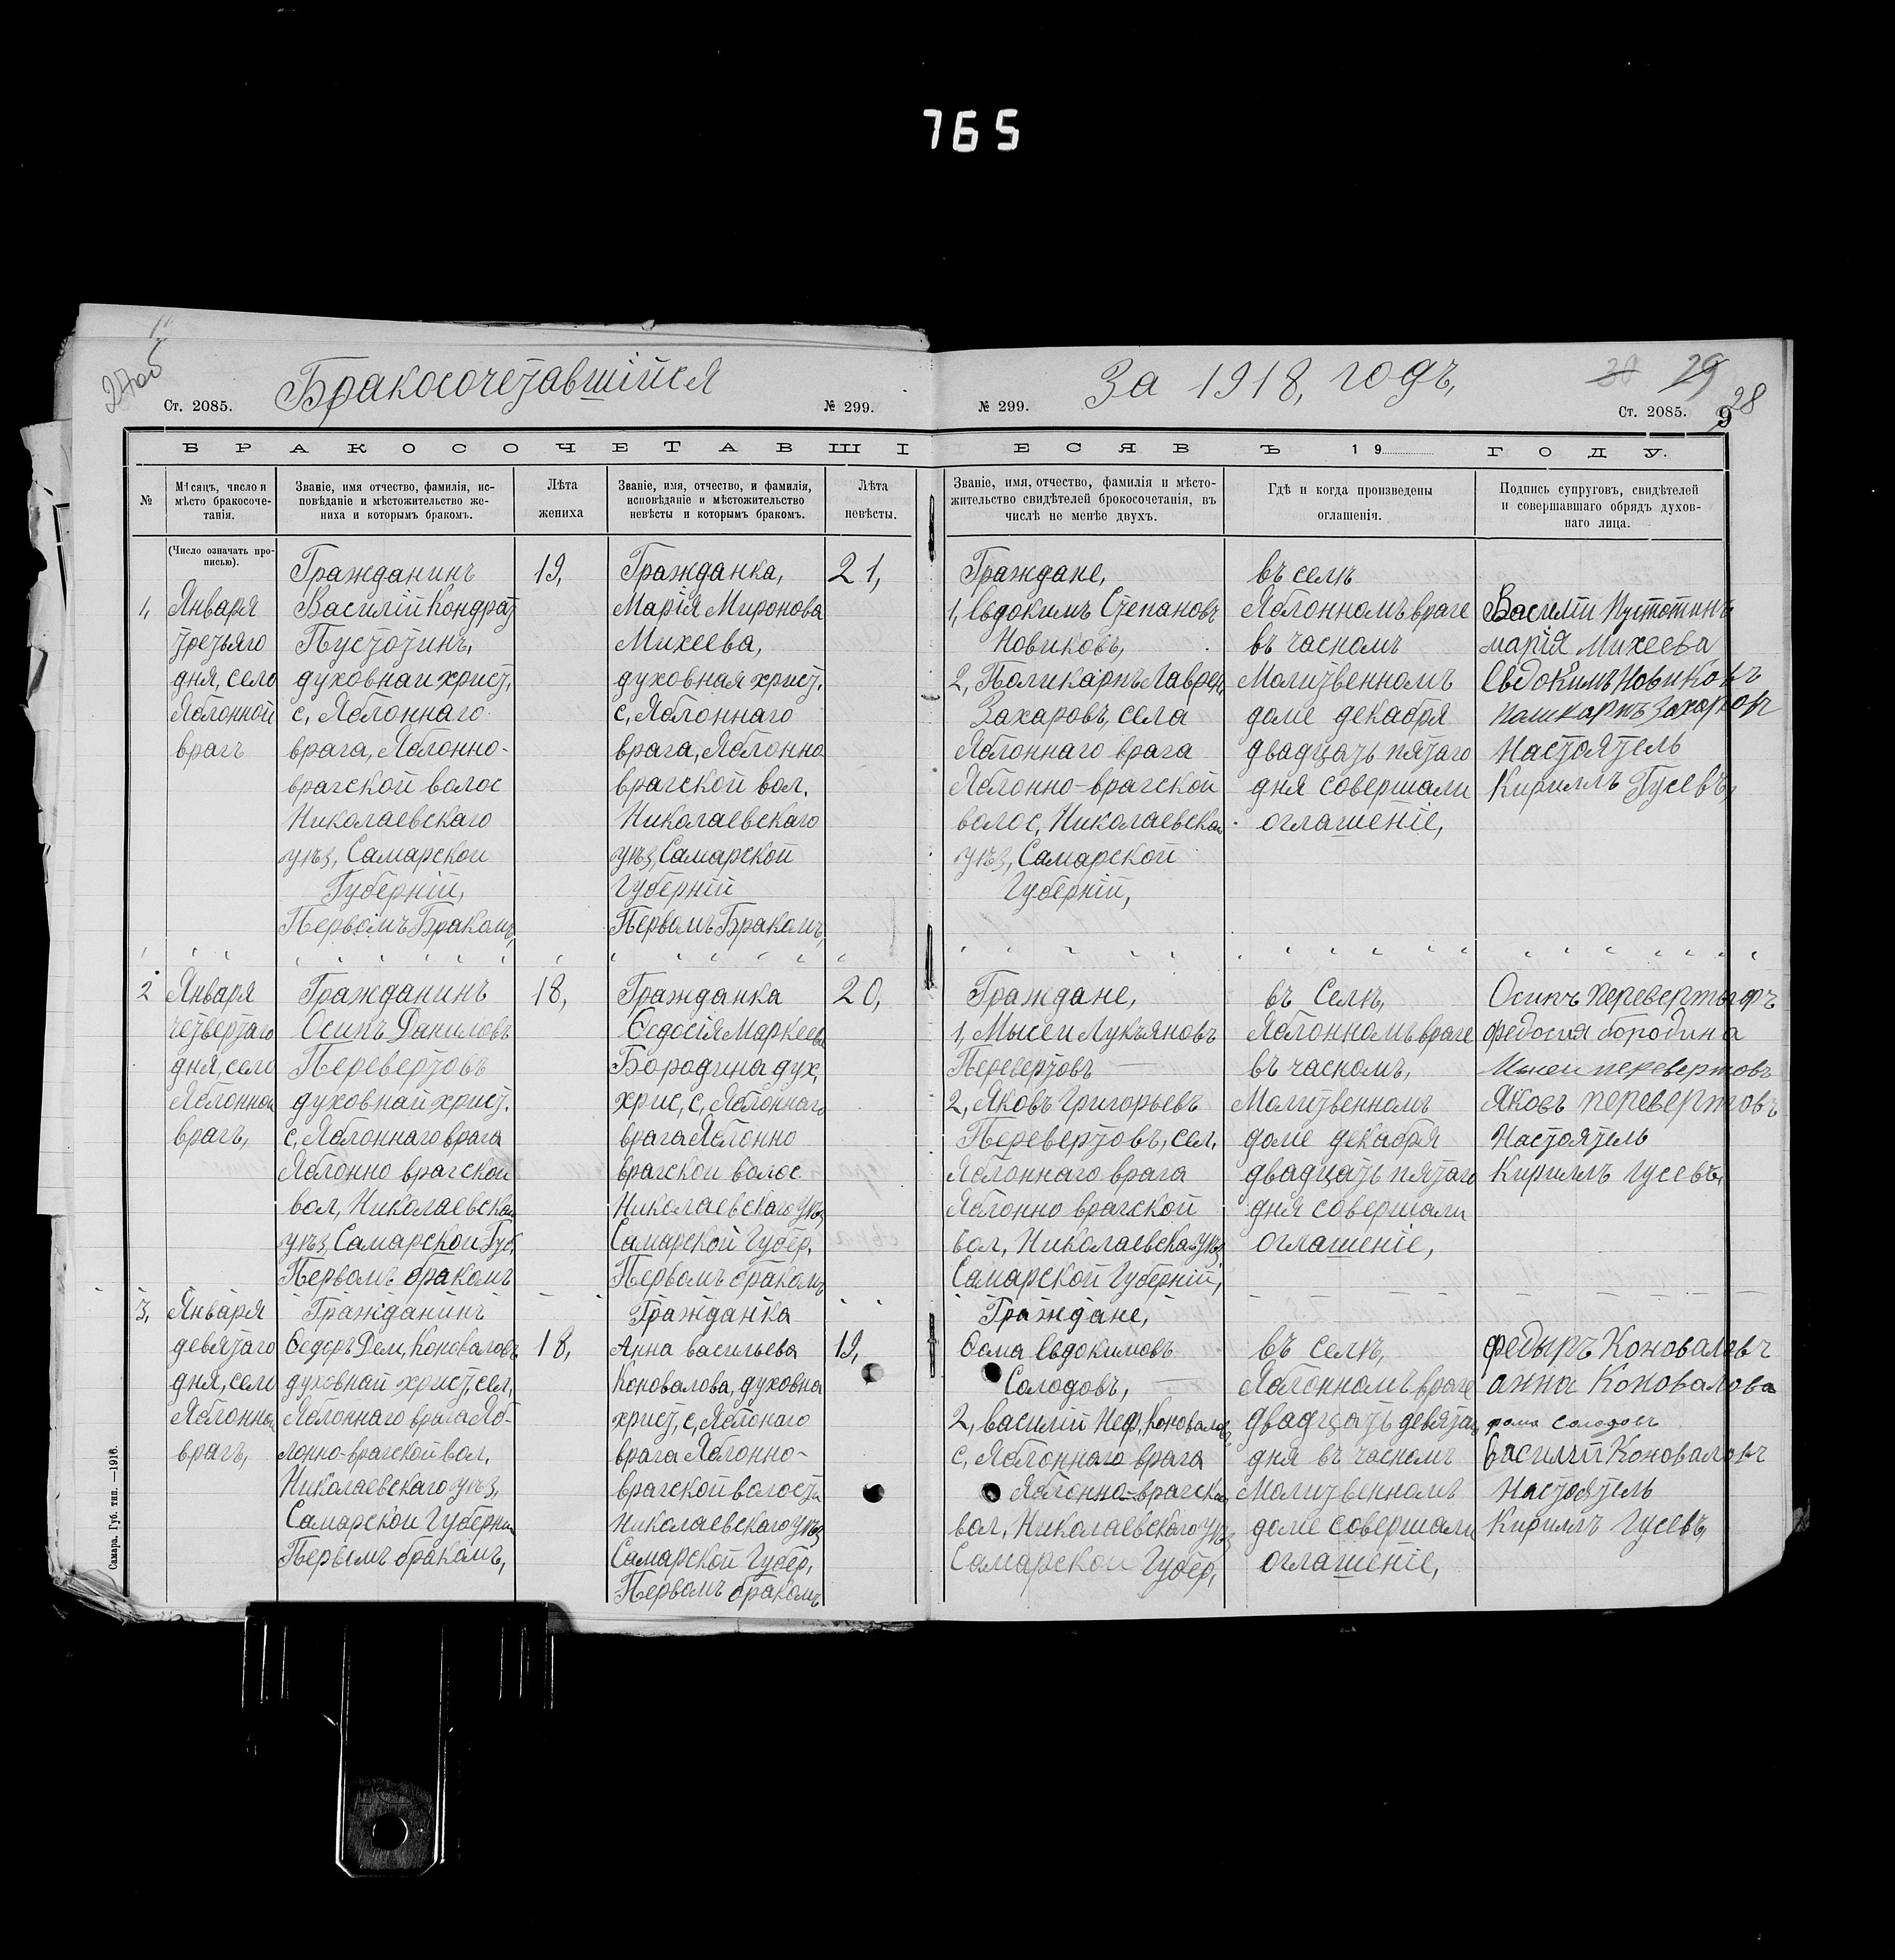 765
Бракосочетавшійся
За 1918, годъ,
30 29 28
Ст. 2085.
№ 299.
№ 299.
Ст. 2085.
9
БРАКОСОЧЕТАВШІ
ЕСЯ ВЪ 19 ГОДУ.
№
Мѣсяцъ, число и
мѣсто бракосоче-
танія.
Званіе, имя отчество, фамилія, ис-
повѣданіе и мѣстожительство же-
ниха и которымъ бракомъ.
Лѣта
жениха
Званіе, имя, отчество, и фамилія,
исповѣданіе и мѣстожительство
невѣсты и которымъ бракомъ.
Лѣта
невѣсты.
Званіе, имя, отчество, фамилія и мѣсто-
жительство свидѣтелей брокосочетанія, въ
числѣ не менѣе двухъ.
Гдѣ и когда произведены
оглашенія.
Подпись супруговъ, свидѣтелей
и совершавшаго обрядъ духов-
наго лица.
(Число означать про-
писью).
1,
Января
третьяго
дня, село
Яблонной
врагъ
Гражданинъ
Василій Кондрат
Пустотинъ,
духовнаи христ,
с, Яблоннаго
врага, Яблонно-
врагской волос
Николаевскаго
уѣз, Самарской
Губерній,
Первомъ Бракомъ,
19,
Гражданка,
Марія Миронова
Михеева,
духовная христ,
с, Яблоннаго
врага, Яблонно
врагской вол,
Николаевскаго
уѣз, Самарской
Губерній
Первомъ Бракомъ,
21,
Граждане,
1, Евдокимъ Степановъ
Новиковъ,
2, Поликарпъ Гаврил,
Захаровъ, села
Яблоннаго врага
Яблонно-врагской
волос, Николаевскаго
уѣз, Самарской
Губерній,
въ селѣ
Яблонномъ враге
въ часномъ
Молитвенномъ
доме декабря
двадцать пятаго
дня совершали
оглашеніе,
Василій Пустотинъ
марія Михеева
Евдокимъ Новиковъ
поликарпъ Захаровъ
Настоятель
Кириллъ Гусевъ,
2
Января
четвертаго
дня, село
Яблонной
врагъ,
Гражданинъ
Осипъ Даниловъ
Перевертовъ
духовнай христ,
с, Яблоннаго врага
Яблонно врагской
вол, Николаевскаго
уѣз, Самарской Губ,
Первомъ бракомъ
18,
Гражданка
Ѳедосія Маркеева
Бородина дух,
хрис, с, Яблоннаго
врага Яблонно
врагской волос
Николаевскаго уѣз
Самарской Губер,
Первомъ бракомъ
20,
Граждане,
1, Мысеи Лукъяновъ
Перевертовъ
2, Яковъ Григорьевъ
Перевертовъ, сел,
Яблоннаго врага
Яблонно врагской
вол, Николаевскаго уѣз,
Самарской Губерній,
въ Селѣ,
Яблонномъ враге
въ часномъ,
Молитвенномъ
доме декабря
двадцать пятаго
дня совершали
оглашеніе,
Осипъ перевертофъ
федосия бородина
Мысеи перевертовъ
Яковъ перевертовъ
Настоятель
Кириллъ Гусевъ,
3,
Января
девятаго
дня, села
Яблонной
врагъ,
Гражданинъ
Ѳедоръ Дем, Коноваловъ
духовнай христ, сел,
Яблоннаго врага Яб-
лонно-врагской вол,
Николаевскаго уѣз,
Самарской Губерніи
Первомъ бракомъ,
18,
Гражданка
Анна васильева
Коновалова, духовна
христ, с, Яблонаго
врага Яблонно-
врагской волости
Николаевскаго уѣз
Самарской Губер,
Первомъ бракомъ
19,
Граждане,
Ѳома Евдокимовъ
Солодовъ,
2, василій Неф, Коновалов
с, Яблоннаго врага
Яблонно-врагской
вол, Николаевскаго уѣз
Самарской Губер,
въ селѣ,
Яблонномъ враге
двадцать девятаго
дня въ часномъ
Молитвенномъ
доме совершали
оглашеніе,
федыръ Коноваловъ
анна Коновалова
фома Солодовъ
василій Коноваловъ
Настоятель
Кириллъ Гусевъ,
Самара. Губ. тип. —1916.